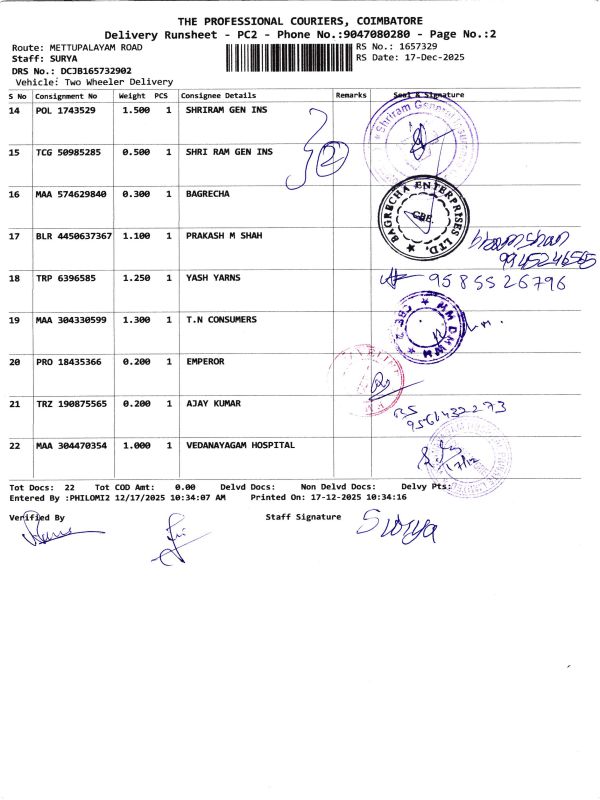 THE PROFESSIONAL COURIERS, COIMBATORE
Delivery Runsheet - PC2 - Phone No.:9047080280 - Page No.:2
Route: METTUPALAYAM ROAD RS No.: 1657329
Staff: SURYA RS Date: 17-Dec-2025
DRS No.: DCJB165732902
Vehicle: Two Wheeler Delivery
S No Consignment No Weight PCS Consignee Details Remarks Seal & Signature
14 POL 1743529 1.500 1 SHRIRAM GEN INS
Shriram General
15 TCG 50985285 0.500 1 SHRI RAM GEN INS 2
16 MAA 574629840 0.300 1 BAGRECHA
BAGRECHA ENTERPRISES LTD. CBE.
17 BLR 4450637367 1.100 1 PRAKASH M SHAH
9945246565
18 TRP 6396585 1.250 1 YASH YARNS 9585526796
19 MAA 304330599 1.300 1 T.N CONSUMERS
20 PRO 18435366 0.200 1 EMPEROR
21 TRZ 190875565 0.200 1 AJAY KUMAR
9561432273
22 MAA 304470354 1.000 1 VEDANAYAGAM HOSPITAL
17/12
Tot Docs: 22 Tot COD Amt: 0.00 Delvd Docs: Non Delvd Docs: Delvy Pts:
Entered By :PHILOMI2 12/17/2025 10:34:07 AM Printed On: 17-12-2025 10:34:16
Verified By Staff Signature Surya